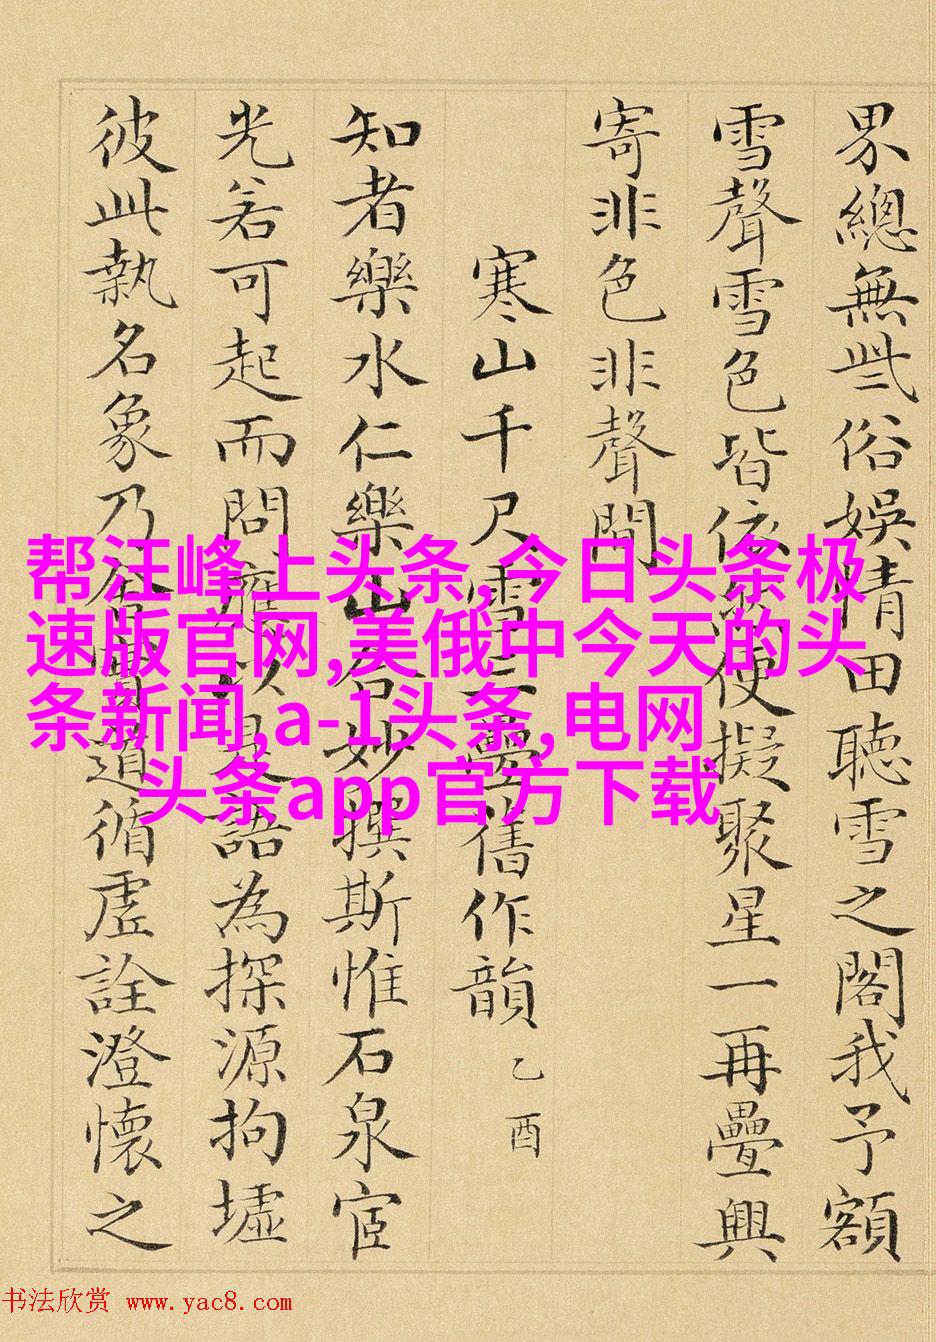 界總無些俗娛情田聽雪之閣我予額
雪聲雪色皆依使擬聚星一再疊興
寄非色非聲間
寒山千尺雪三疊舊作韻 乙酉
知者樂水仁樂山合妙撰斯惟石泉宦
光若可起而問應以是語為探源拘墟
彼此執名象乃道循虛詮澄懷之
帮汪峰上头条,今日头条极
速版官网,美俄中今天的头
条新闻,a-1头条,电网
头条app官方下载
书法欣赏 www.yac8.com